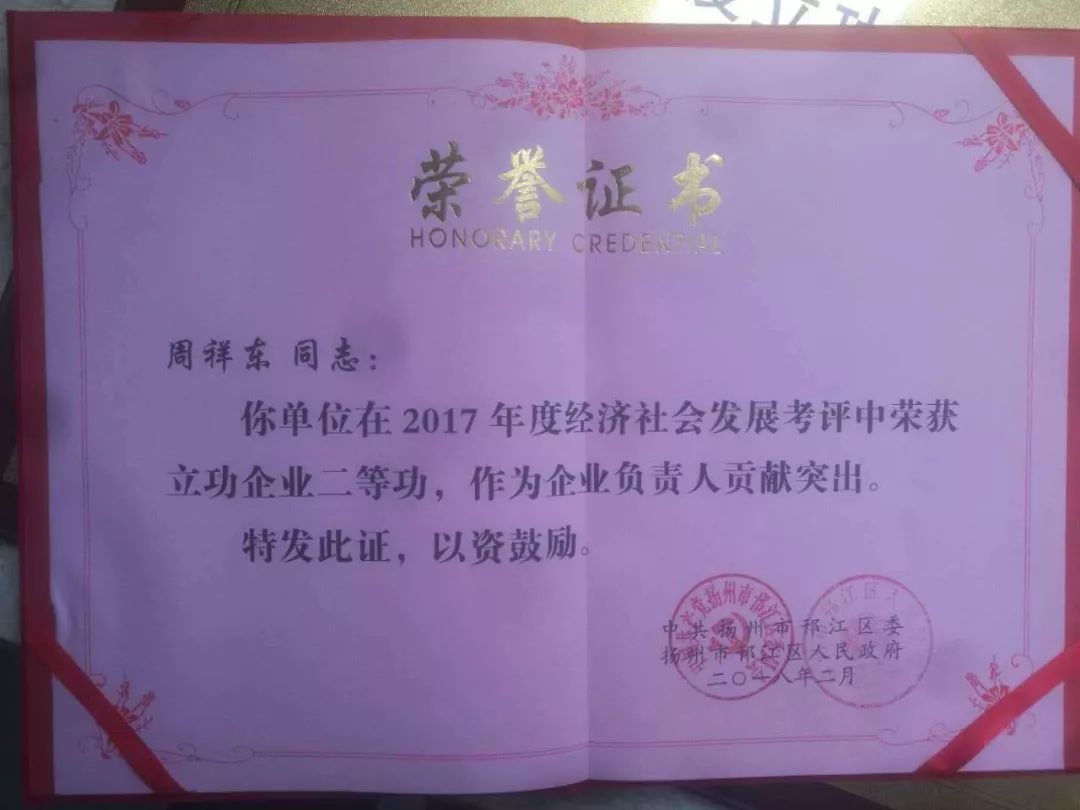 立功
荣誉证书
HONORARY CREDENTIAL
周祥东 同志：
你单位在2017年度经济社会发展考评中荣获
立功企业二等功，作为企业负责人贡献突出。
特发此证，以资鼓励。
中共扬州市邗江区委
扬州市邗江区人民政府
二〇一八年二月